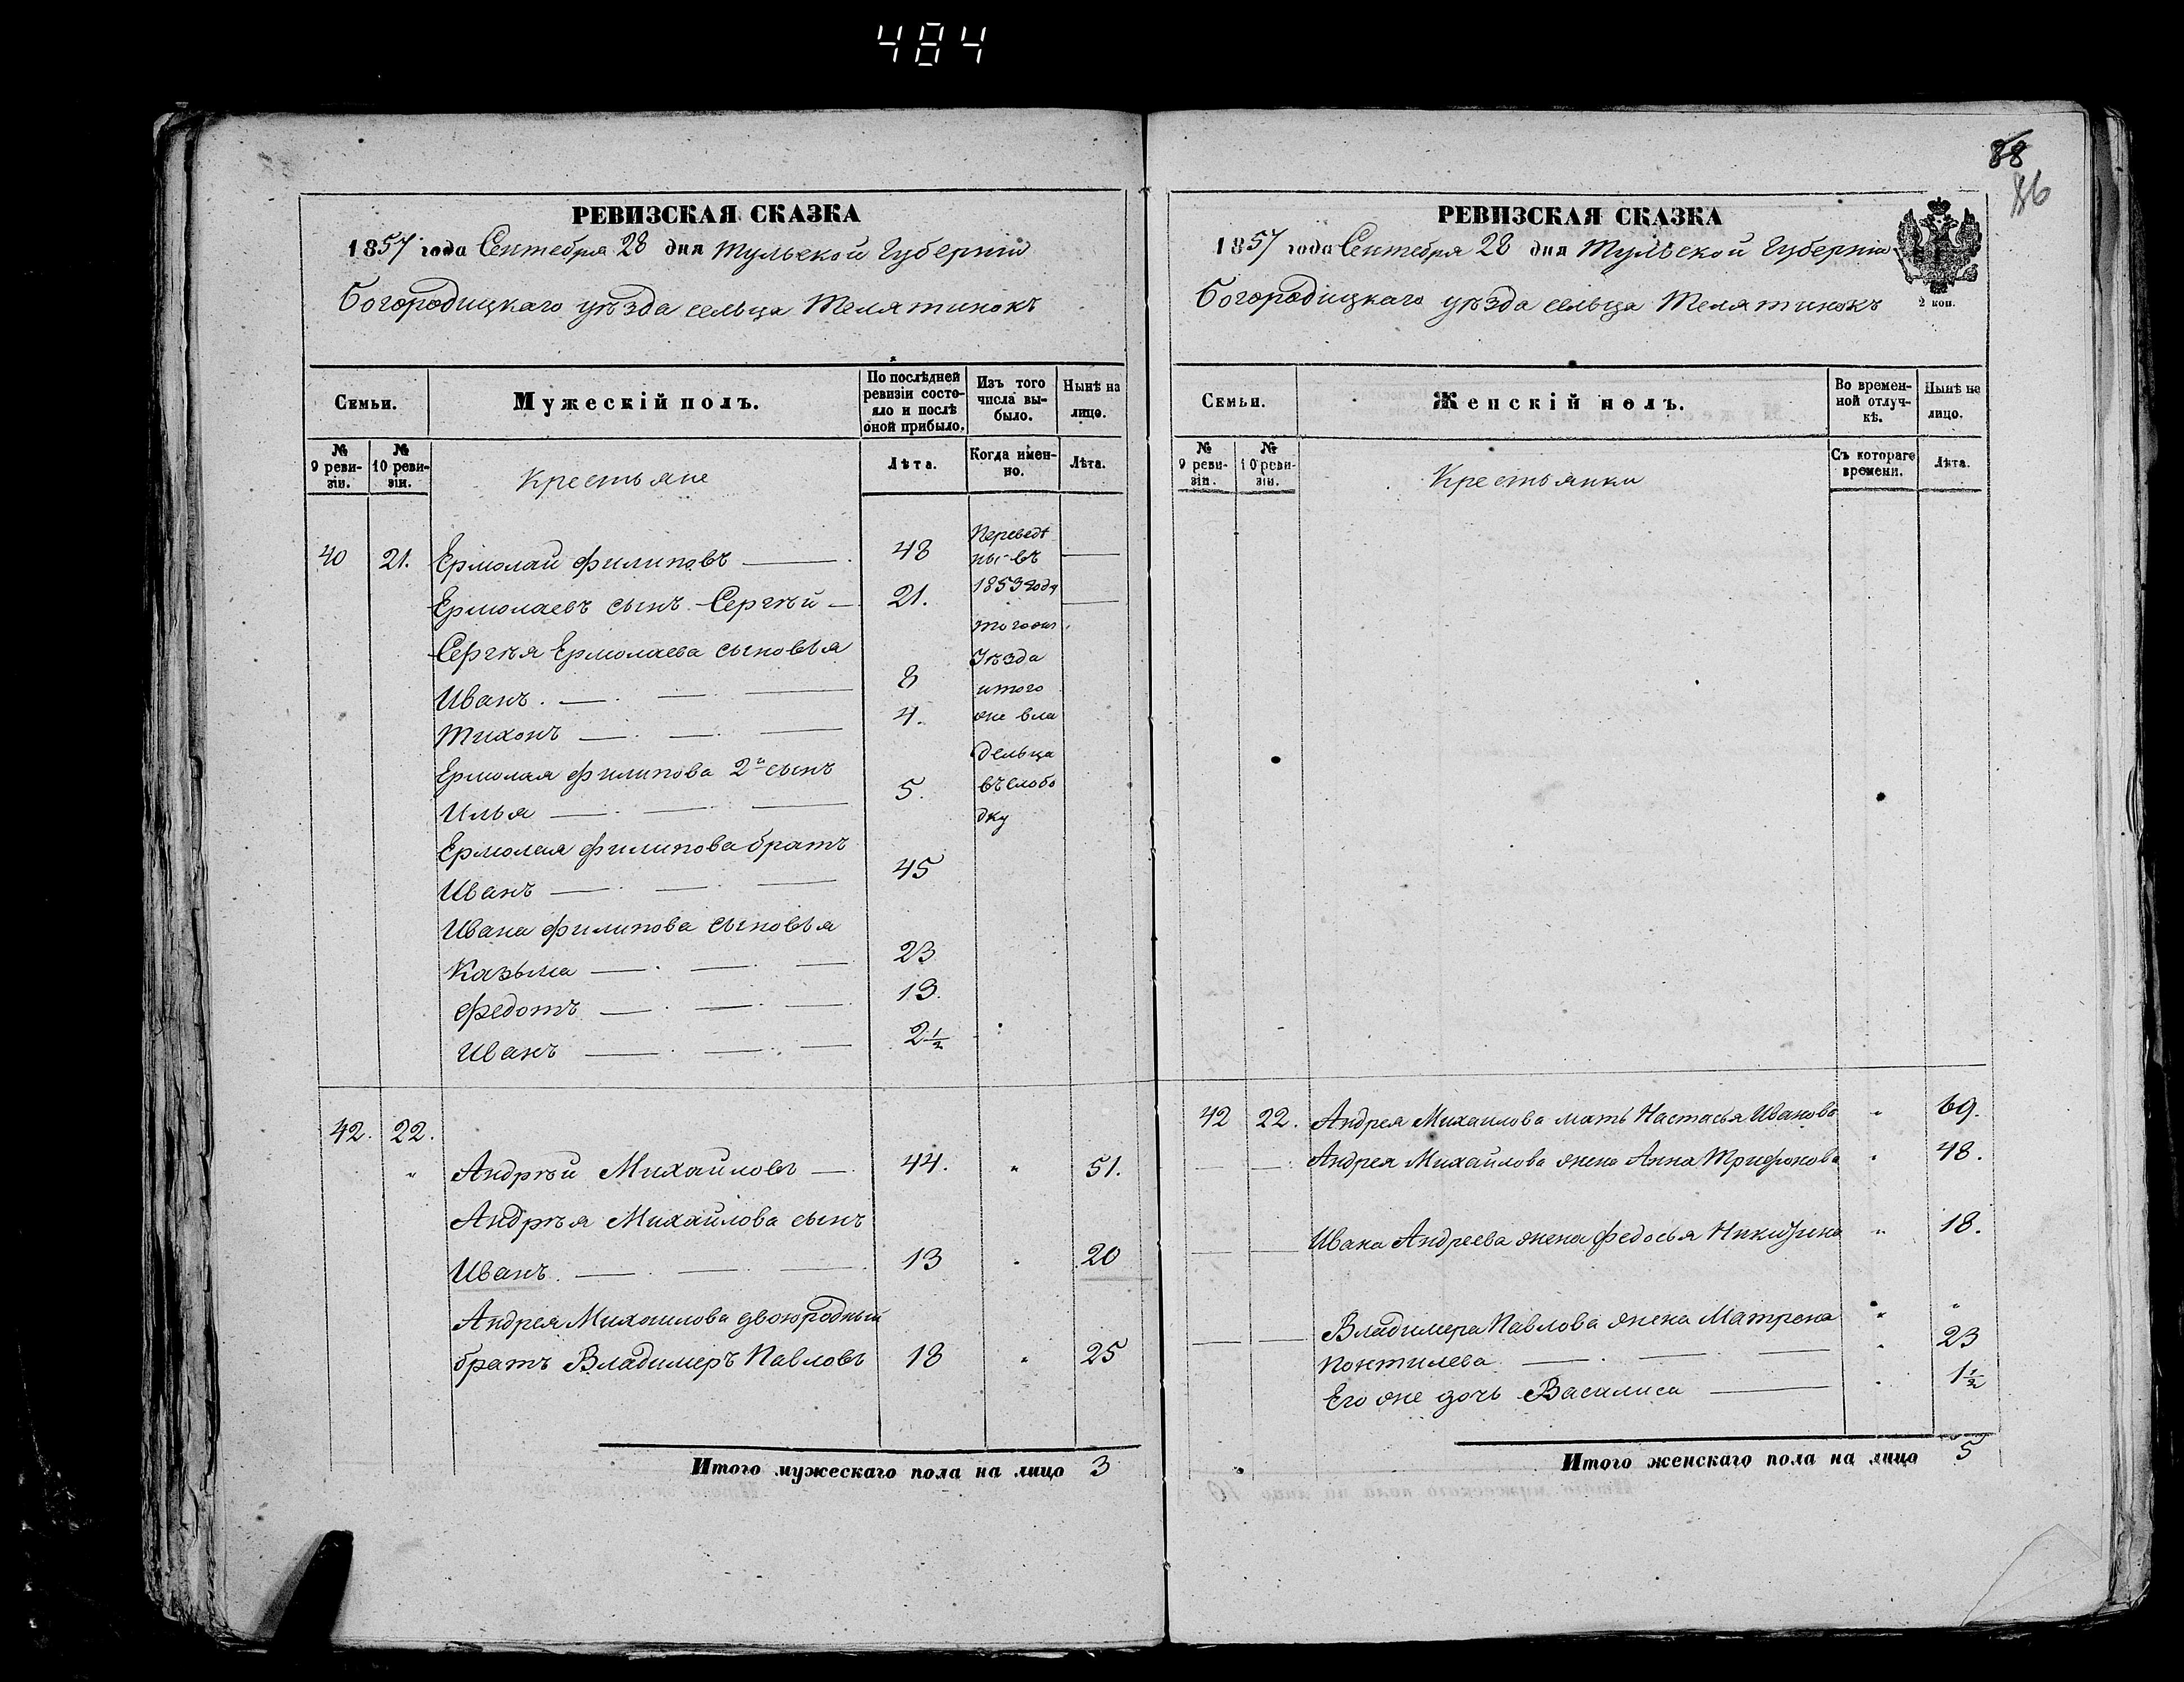 484
88
86
РЕВИЗСКАЯ СКАЗКА
1857 года Сентебря 28 дня Тульской Губерніи
Богородицкаго уѣзда сельца Телятинокъ
Семьи.
Мужескій полъ.
По послѣдней ревизіи состояло и послѣ оной прибыло.
Изъ того числа выбыло.
Нынѣ на лицо.
№ 9 ревизіи.
№ 10 ревизіи.
Крестьяне
Лѣта.
Когда именно.
Лѣта.
40 21. Ермолай Филиповъ 48
Ермолаевъ сынъ Сергѣй 21.
Сергѣя Ермолаева сыновья
Иванъ 8
Тихонъ 4.
Ермолая Филипова 2й сынъ
Илья 5.
Ермолая Филипова братъ
Иванъ 45
Ивана Филипова сыновья
Казьма 23
Федотъ 13.
Иванъ 2 1/2
Переведе
ны въ
1853 году
тогоже
Уѣзда
итого
же вла
дельца
въ слобо
дку
42. 22.
" Андрѣй Михайловъ 44. " 51.
Андрѣя Михайлова сынъ
Иванъ 13 " 20
Андрея Михаилова двоюродный
братъ Владимеръ Павловъ 18 " 25
Итого мужескаго пола на лицо 3
РЕВИЗСКАЯ СКАЗКА
1857 года Сентебря 28 дня Тульской Губерніи
Богородицкаго уѣзда сельца Телятинокъ
2 коп.
Семьи.
Женскій полъ.
Во временной отлучкѣ.
Нынѣ на лицо.
№ 9 ревизіи.
№ 10 ревизіи.
Крестьянки
Съ котораго времени.
Лѣта.
42 22. Андрея Михаилова мать Настасья Иванова " 69.
Андрея Михайлова жена Анна Трифонова " 48.
Ивана Андреева жена Федосья Никитина " 18.
Владимера Павлова жена Матрена " "
Понтилева " 23
Его же дочь Василиса " 1 1/2
Итого женскаго пола на лицо 5